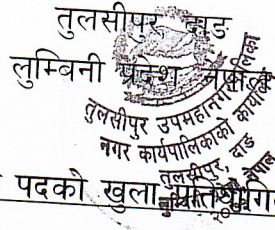 तुलसीपुर दाङ
लुम्बिनी प्रदेश
तुलसीपुर उपमहानगरपालिका
नगर कार्यपालिकाको कार्यालय
तुलसीपुर, दाङ
पदको खुला